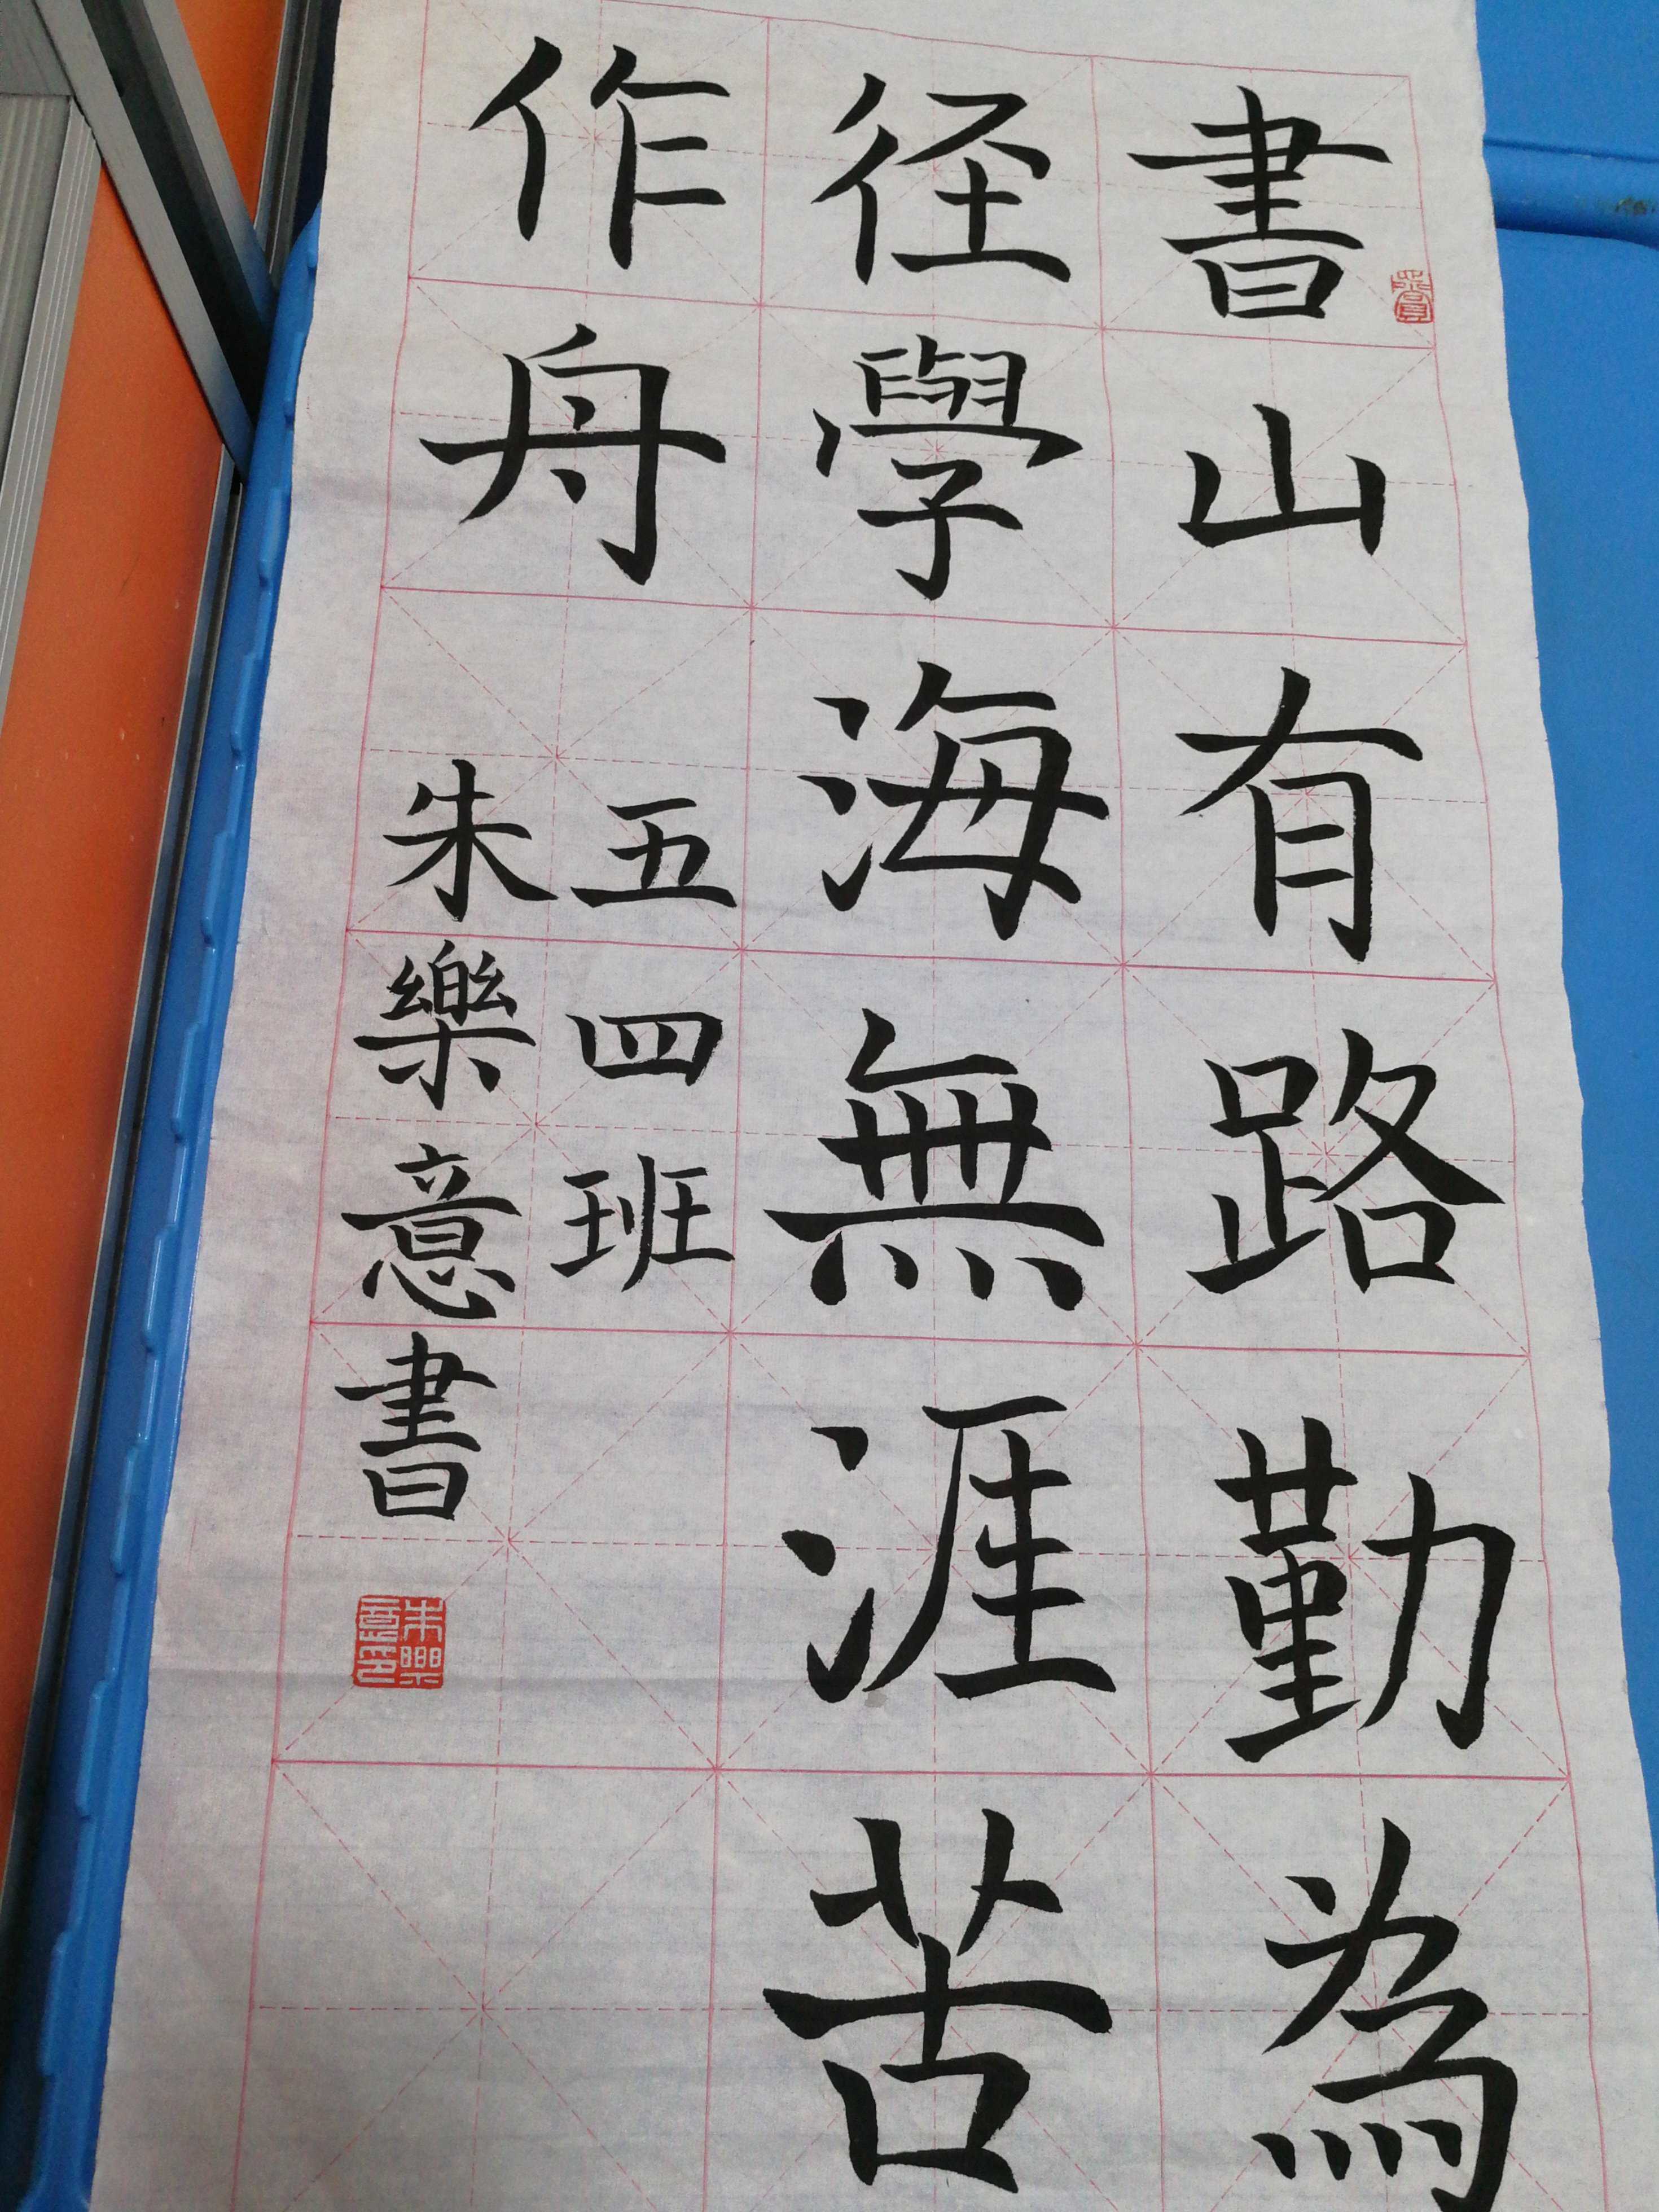 書山有路勤為
径學海無涯苦
作舟
五四班
朱樂意書
朱樂意印